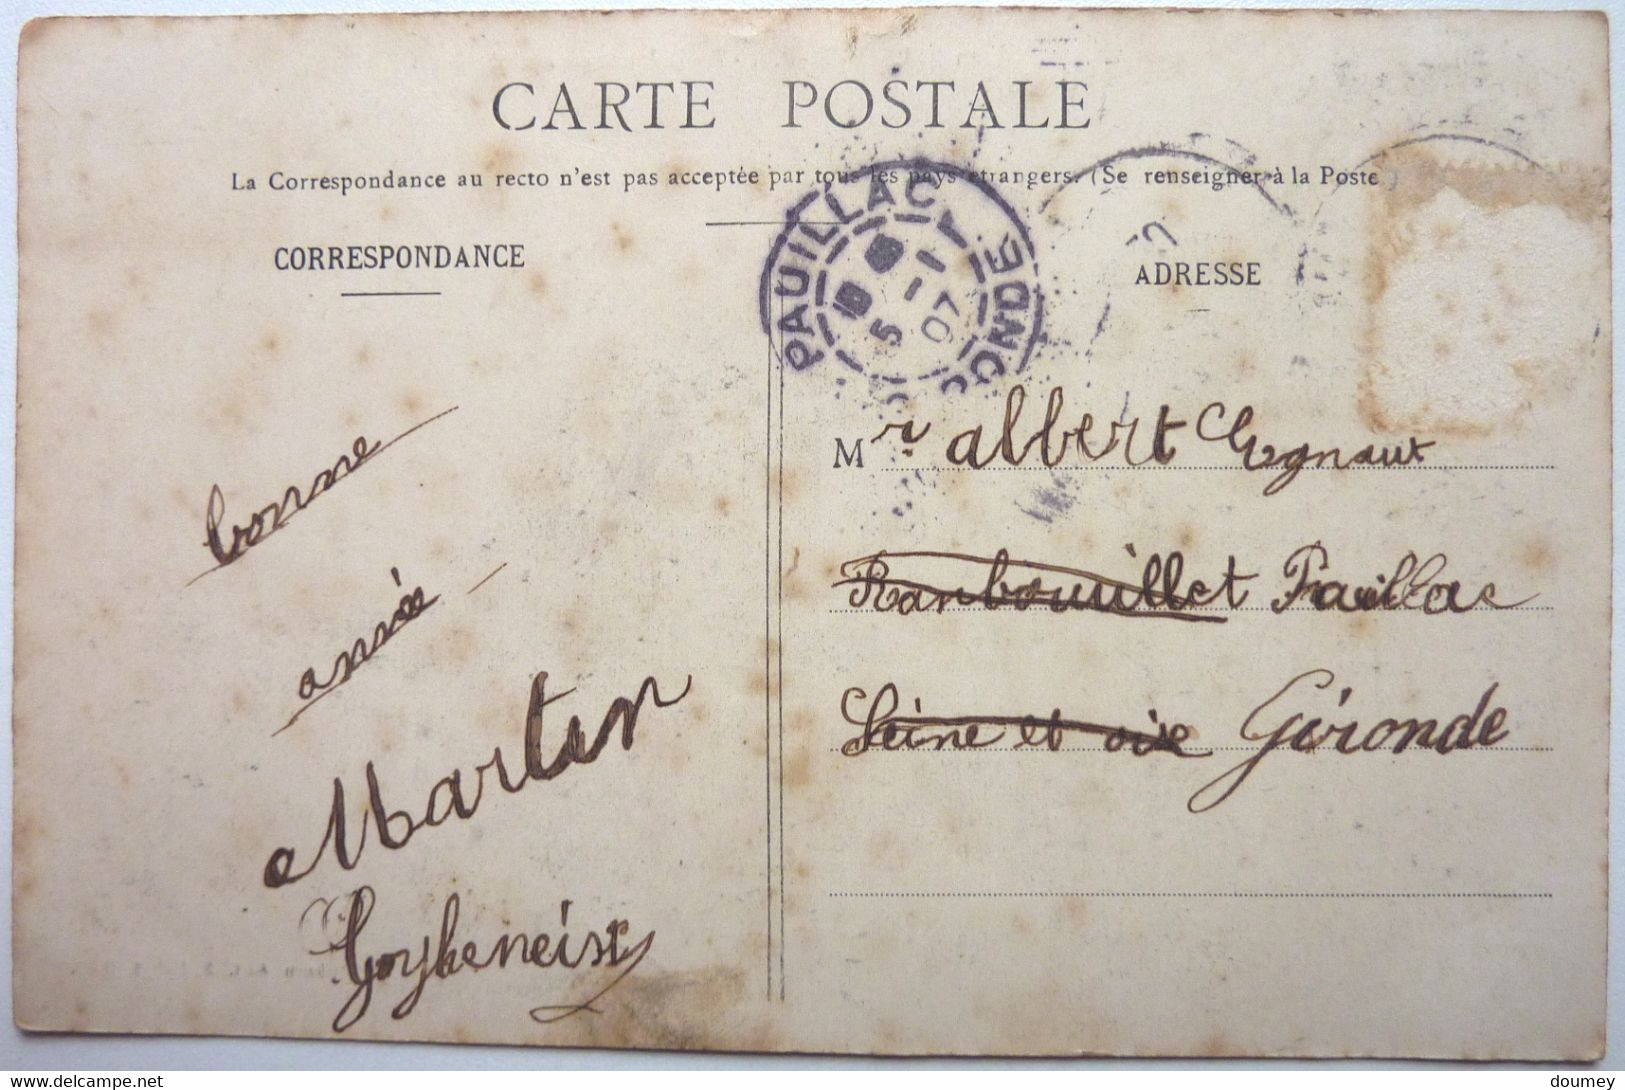 CARTE POSTALE
La Correspondance au recto n'est pas acceptée par tous les pays étrangers. (Se renseigner à la Poste
CORRESPONDANCE
ADRESSE
PAUILLAC GIRONDE
5 -1
07
bonne
année
Marten
Mr. albert
Rambouillet Pauillac
Seine et oise Gironde
doumey